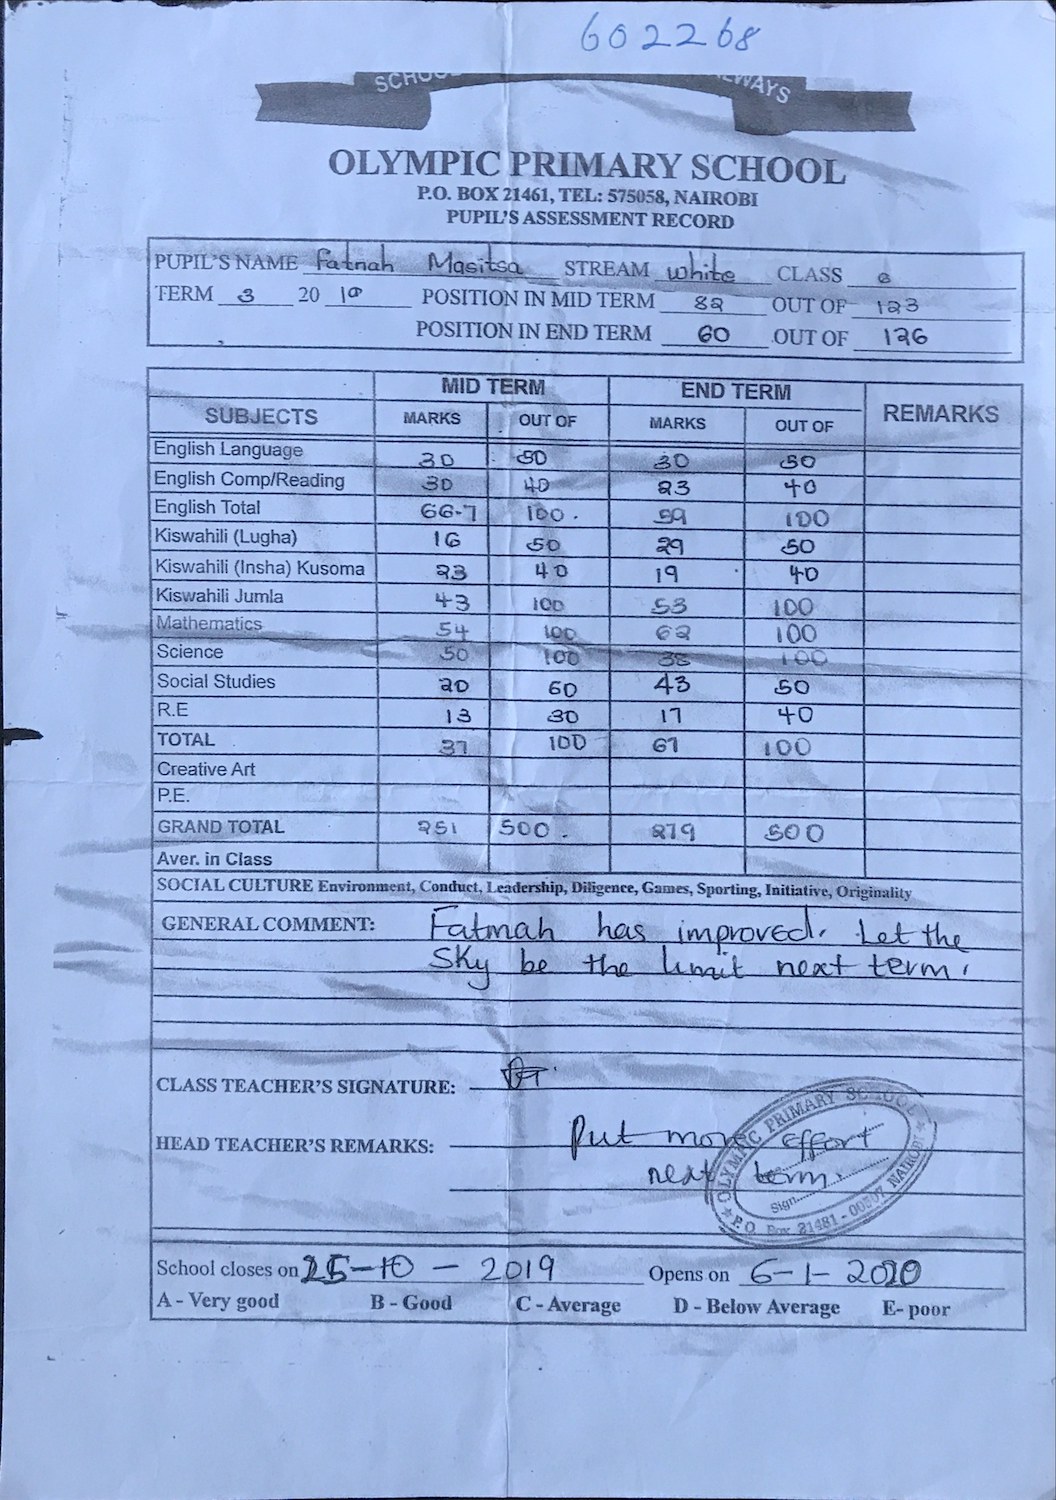 602268
SCHOO EWAYS
OLYMPIC PRIMARY SCHOOL
P.O. BOX 21461, TEL: 575058, NAIROBI
PUPIL'S ASSESSMENT RECORD
PUPIL'S NAME Fatnah Masitsa STREAM White CLASS 6
TERM 3 20 19 POSITION IN MID TERM 82 OUT OF 123
POSITION IN END TERM 60 OUT OF 126
MID TERM END TERM
SUBJECTS MARKS OUT OF MARKS OUT OF REMARKS
English Language 30 50 30 50
English Comp/Reading 30 40 23 40
English Total 66.7 100. 59 100
Kiswahili (Lugha) 16 50 29 50
Kiswahili (Insha) Kusoma 23 40 19 40
Kiswahili Jumla 43 100 53 100
Mathematics 54 100 62 100
Science 50 100 38 100
Social Studies 20 60 43 50
R.E 13 30 17 40
TOTAL 37 100 67 100
Creative Art
P.E.
GRAND TOTAL 251 500. 279 500
Aver. in Class
SOCIAL CULTURE Environment, Conduct, Leadership, Diligence, Games, Sporting, Initiative, Originality
GENERAL COMMENT: Fatmah has improved. Let the
Sky be the limit next term.
CLASS TEACHER'S SIGNATURE:
HEAD TEACHER'S REMARKS: Put more effort
next term.
OLYMPIC PRIMARY SCHOOL
Sign
P.O. Box 21481 - 00507 NAIROBI
School closes on 25-10-2019 Opens on 6-1-2020
A - Very good B - Good C - Average D - Below Average E- poor